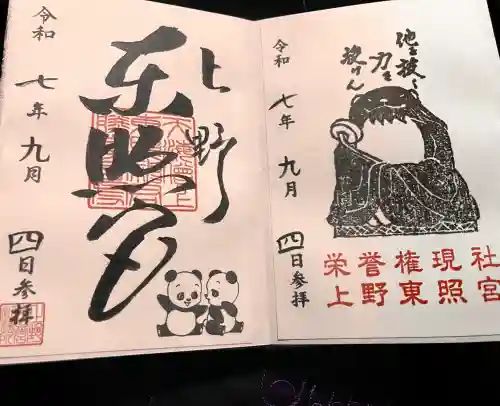 他を抜く
力を
授けん
令和七年九月四日参拝
栄誉権現社
上野東照宮
上野
東照宮
令和七年九月四日参拝